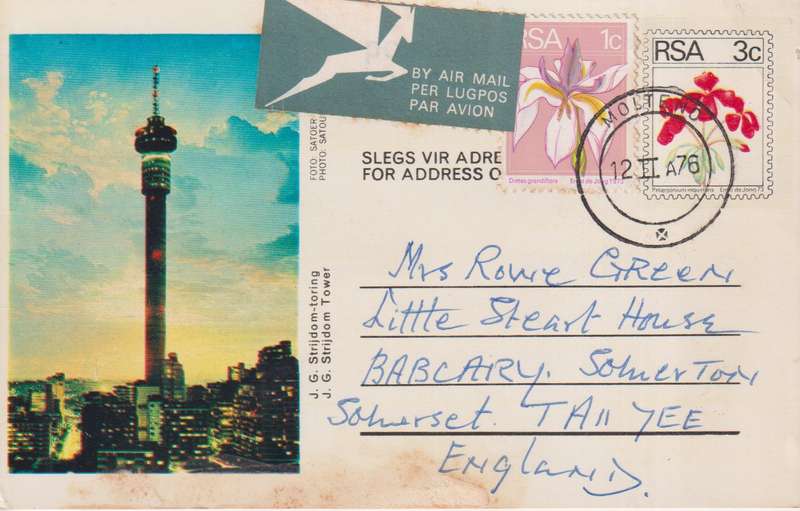 BY AIR MAIL
PER LUGPOS
PAR AVION
RSA 1c
Dietes grandiflora Ernst de Jong 1973
RSA 3c
Pelargonium inquinans Ernst de Jong 73
MOLTENO
12 II A76
FOTO: SATOER
PHOTO: SATOU
SLEGS VIR ADRE
FOR ADDRESS O
J. G. Strijdom-toring
J. G. Strijdom Tower
Mrs Rowe GREEN
Little Steart House
BABCARY. Somerton
Somerset. TA11 7EE
England.